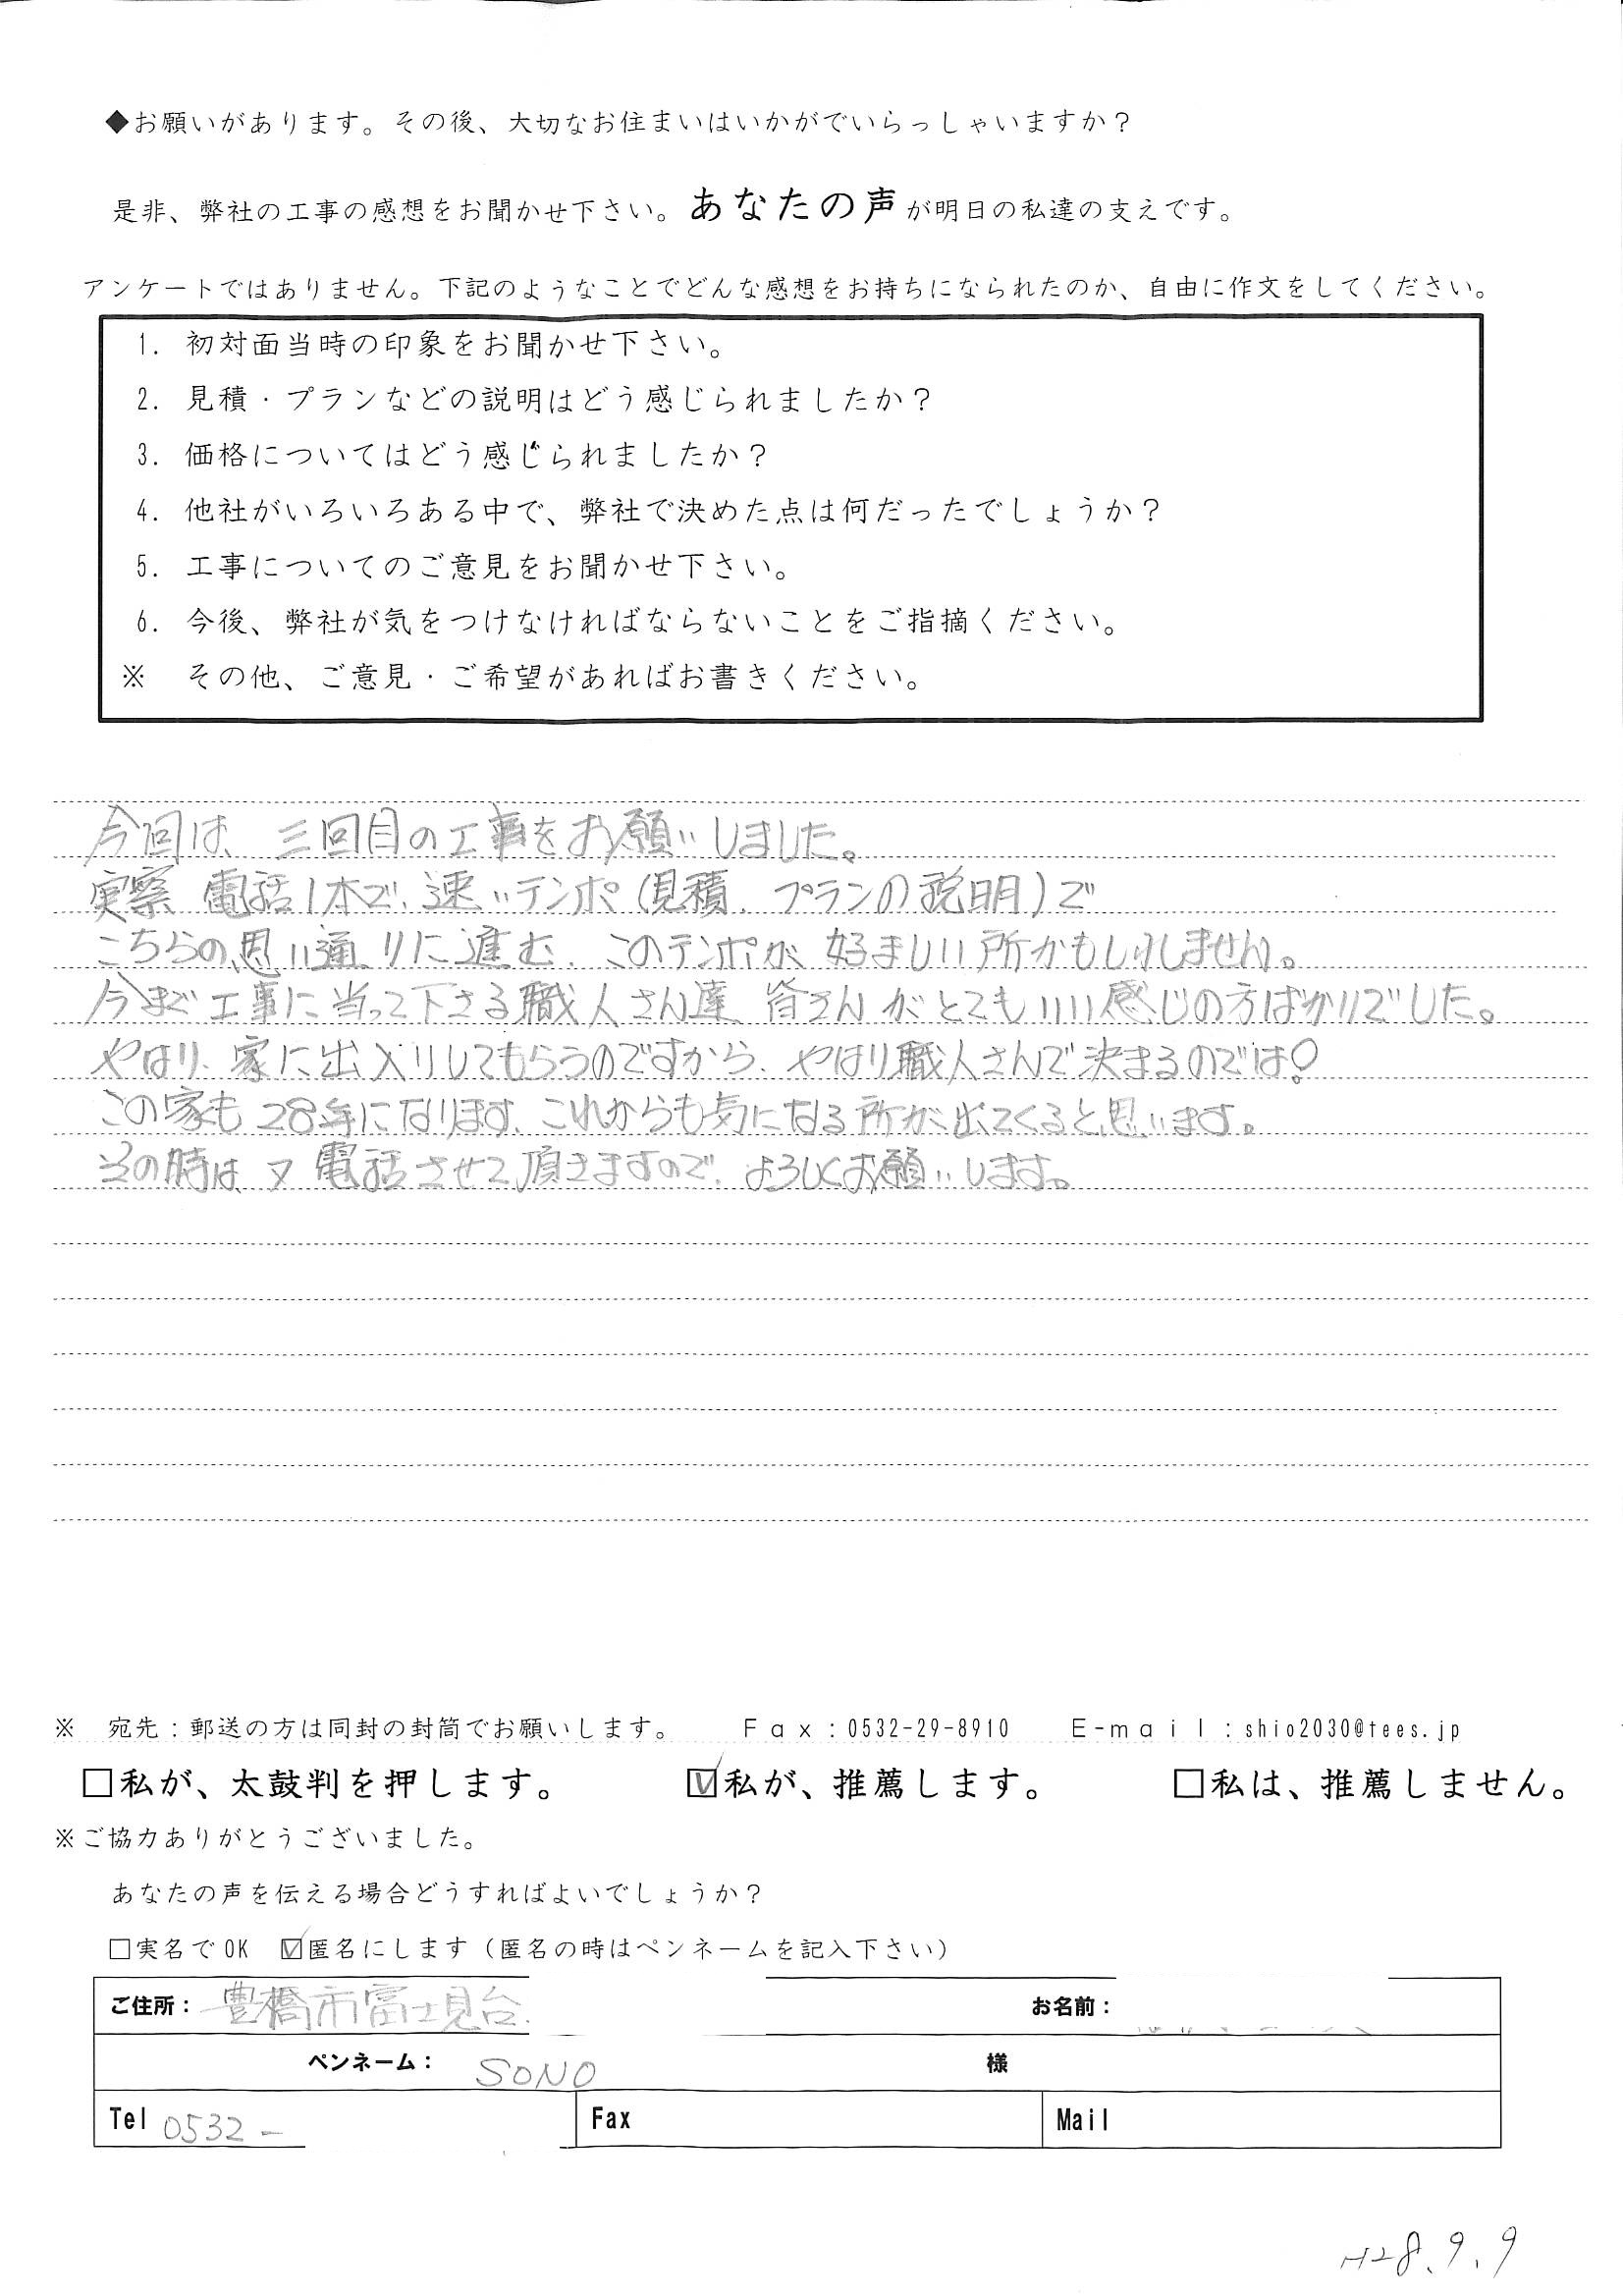 ◆お願いがあります。その後、大切なお住まいはいかがでいらっしゃいますか？
是非、弊社の工事の感想をお聞かせ下さい。あなたの声が明日の私達の支えです。
アンケートではありません。下記のようなことでどんな感想をお持ちになられたのか、自由に作文をしてください。
1. 初対面当時の印象をお聞かせ下さい。
2. 見積・プランなどの説明はどう感じられましたか？
3. 価格についてはどう感じられましたか？
4. 他社がいろいろある中で、弊社で決めた点は何だったでしょうか？
5. 工事についてのご意見をお聞かせ下さい。
6. 今後、弊社が気をつけなければならないことをご指摘ください。
※ その他、ご意見・ご希望があればお書きください。
今回は、三回目の工事をお願いしました。
実際 電話1本で、速いテンポ(見積、プランの説明)で
こちらの思い通りに進む、このテンポが 好ましい所かもしれません。
今まで工事に当って下さる職人さん達 皆さんがとてもいい感じの方ばかりでした。
やはり、家に出入りしてもらうのですから、やはり職人さんで決まるのでは!
この家も 28年になります、これからも気になる所が出てくると思います。
その時は 又 電話させて頂きますので、よろしくお願いします。
※ 宛先：郵送の方は同封の封筒でお願いします。 Fax：0532-29-8910 E-mail：shio2030@tees.jp
□私が、太鼓判を押します。 ☑私が、推薦します。 □私は、推薦しません。
※ご協力ありがとうございました。
あなたの声を伝える場合どうすればよいでしょうか？
□実名でOK ☑匿名にします（匿名の時はペンネームを記入下さい）
ご住所： 豊橋市富士見台 お名前：
ペンネーム： SONO 様
Tel 0532- Fax Mail
H28.9.9